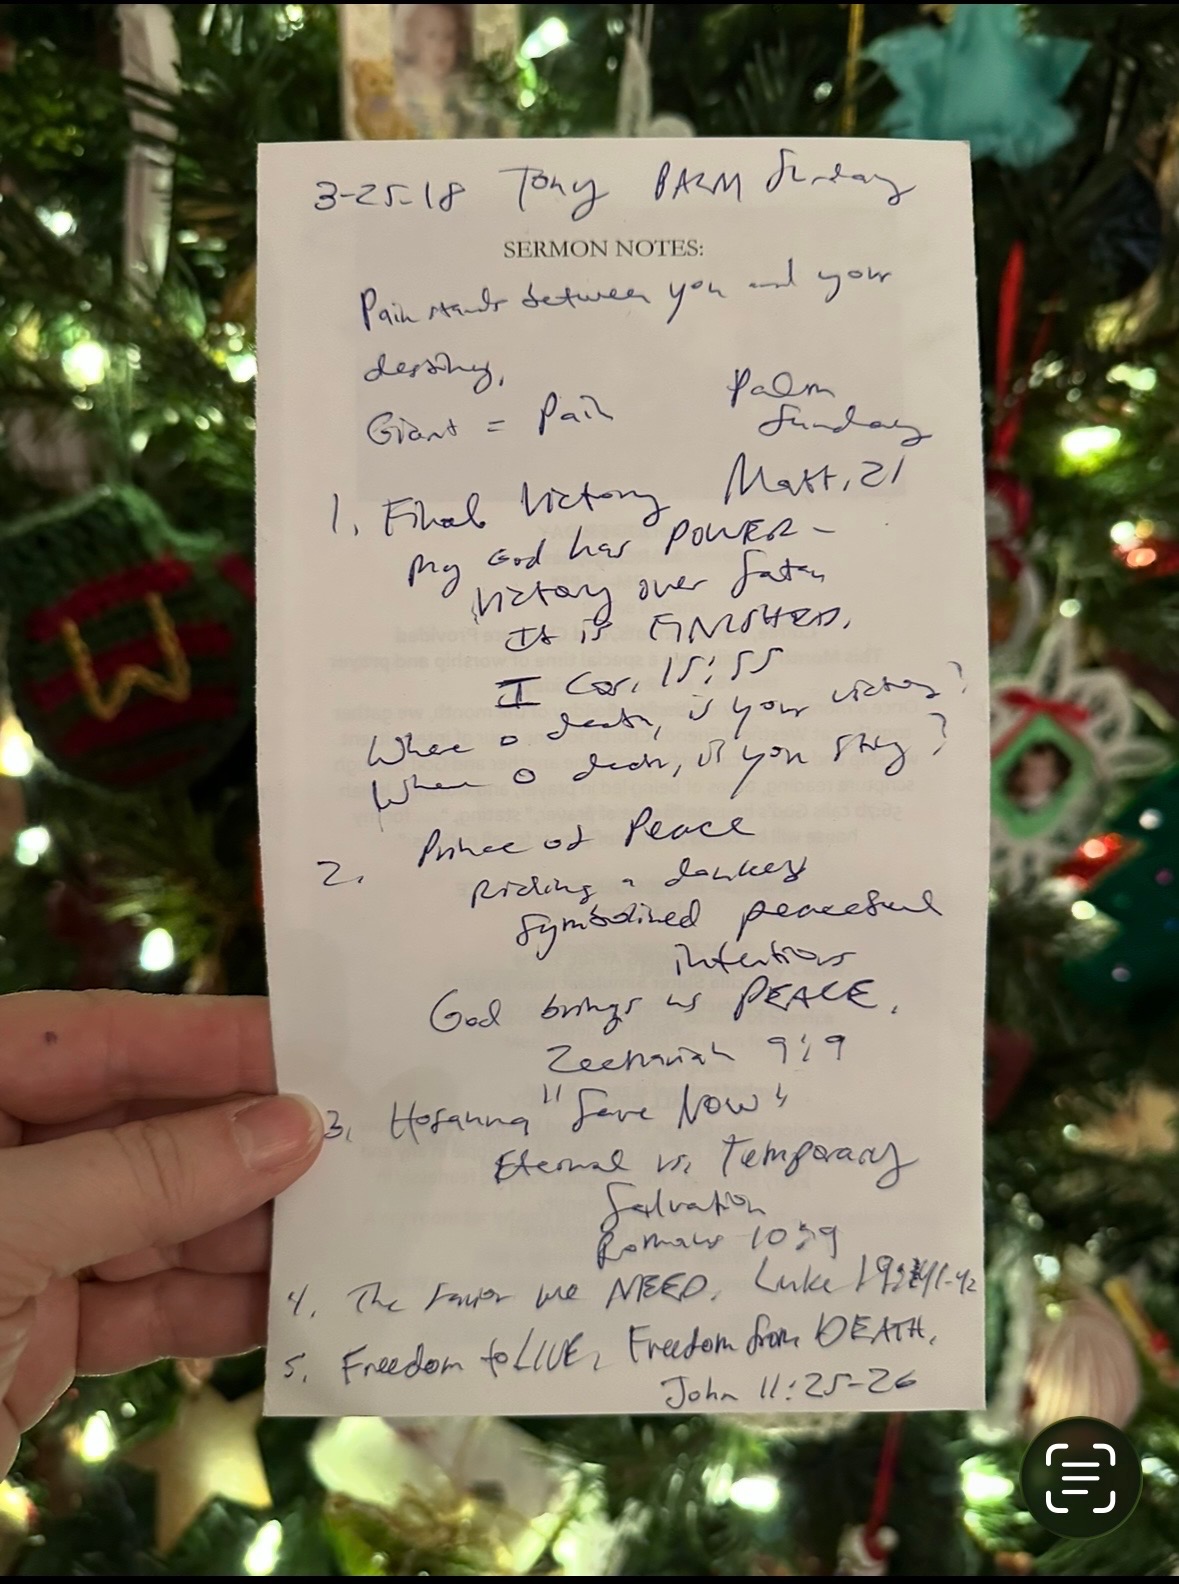 3-25-18 Tony PALM Sunday
SERMON NOTES:
Pain stands between you and your
destiny.
Giant = Pain
Palm
Sunday
1. Final Victory Matt. 21
My God has POWER -
Victory over Satan
It is FINISHED.
I Cor. 15:55
Where o death, is your victory?
Where O death, is your sting?
2. Prince of Peace
Riding a donkey
symbolized peaceful
intentions
God brings us PEACE.
Zechariah 9:9
3. Hosanna "Save Now"
Eternal vs. Temporary
Salvation
Romans 10:9
4. The Savior we NEED. Luke 19:41-42
5. Freedom to LIVE, Freedom from DEATH.
John 11:25-26
W